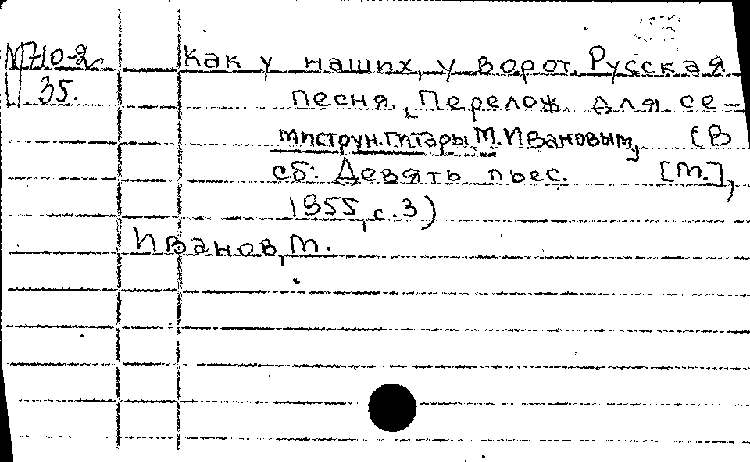 М710-2 Как у наших, у ворот. Русская
35. песня. Перелож. для се-
миструн. гитары М. Ивановым, (В
сб: Девять пьес. [М.],
1955, с. 3)
Иванов, М.